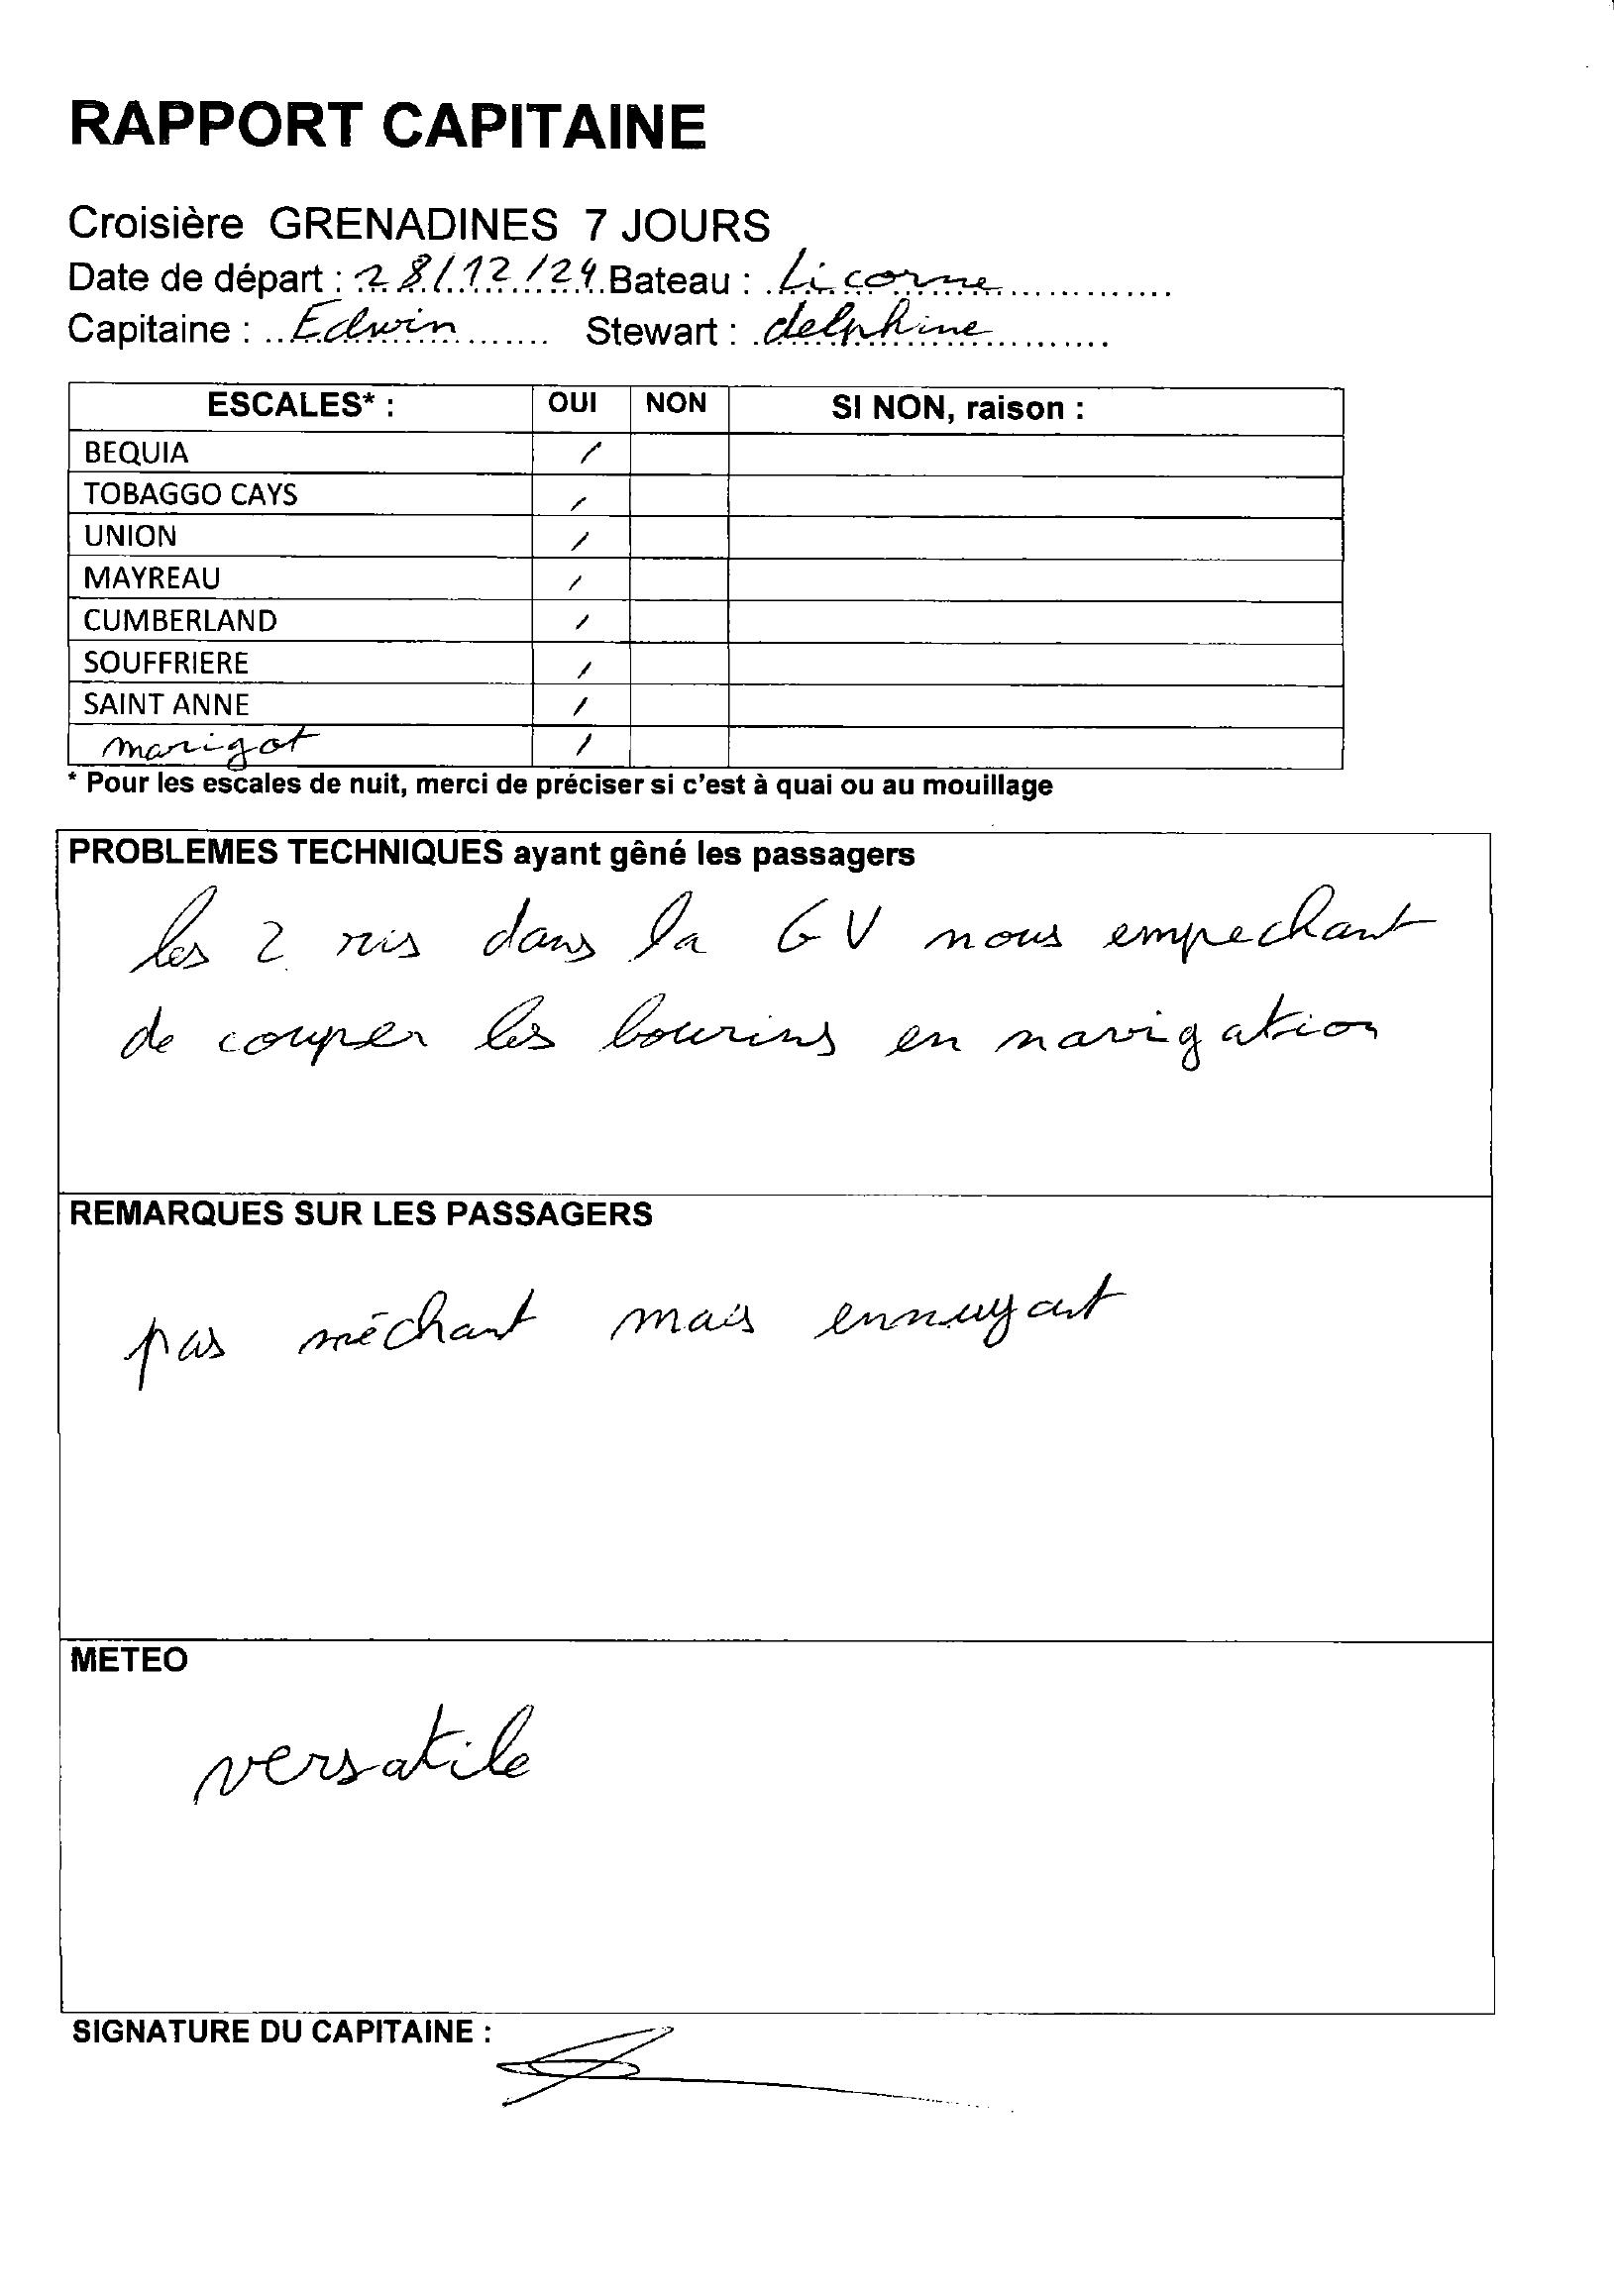 RAPPORT CAPITAINE
Croisière GRENADINES 7 JOURS
Date de départ : 28/12/24 Bateau : Licorne
Capitaine : Edwin Stewart : delphine
ESCALES* : OUI NON SI NON, raison :
BEQUIA /
TOBAGGO CAYS /
UNION /
MAYREAU /
CUMBERLAND /
SOUFFRIERE /
SAINT ANNE /
marigot /
* Pour les escales de nuit, merci de préciser si c'est à quai ou au mouillage
PROBLEMES TECHNIQUES ayant gêné les passagers
les 2 ris dans la GV nous empechant
de couper les bourins en navigation
REMARQUES SUR LES PASSAGERS
pas méchant mais ennuyant
METEO
versatile
SIGNATURE DU CAPITAINE :